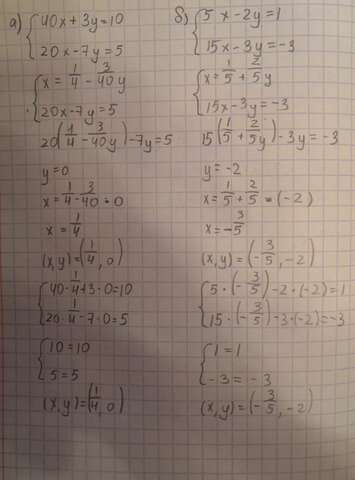 а) { 40x + 3y = 10
20x - 7y = 5
{ x = 1/4 - 3/40 y
20x - 7y = 5
20(1/4 - 3/40 y) - 7y = 5
y = 0
x = 1/4 - 3/40 · 0
x = 1/4
(x, y) = (1/4, 0)
{ 40 · 1/4 + 3 · 0 = 10
20 · 1/4 - 7 · 0 = 5
{ 10 = 10
5 = 5
(x, y) = (1/4, 0)
б) { 5x - 2y = 1
15x - 3y = -3
{ x = 1/5 + 2/5 y
15x - 3y = -3
15(1/5 + 2/5 y) - 3y = -3
y = -2
x = 1/5 + 2/5 · (-2)
x = -3/5
(x, y) = (-3/5, -2)
{ 5 · (-3/5) - 2 · (-2) = 1
15 · (-3/5) - 3 · (-2) = -3
{ 1 = 1
-3 = -3
(x, y) = (-3/5, -2)